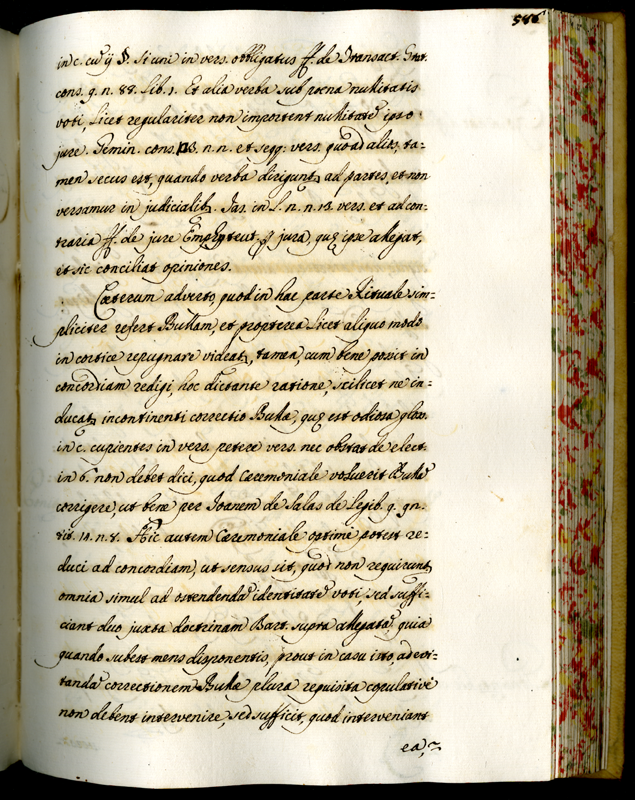 586
in c. cu ij §. si uni in vers. obligatus ff. de Transact. Grat.
cons. 9. n. 88. lib. 1. Et alia verba sub poena nullitatis
voti, licet regulariter non important nullitatē ipso
jure. Gemin. cons. 113. n. n. et seqq. vers. quoad alia, ta-
men secus est, quando verba dirigunt ad partes, et non
versamur in judicialib. Jas. in l. n. n. 13. vers. et ad con-
traria ff. de jure Emphyteut. jura, quę ipse allegat,
et sic conciliat opiniones.
Cæterum adverto quod in hac parte Rituale sim-
pliciter refert Bullam, et propterea licet aliquo modo
in cortice repugnare videat, tamen, cum bene possit in
concordiam redigi, hoc dictante ratione, scilicet ne in-
ducat incontinenti correctio Bullæ, quę est odiosa glos.
in c. cupientes in vers. petere vers. nec obstat de elect.
in 6. non debet dici, quod Cæremoniale voluerit Bullā
corrigere, ut bene per Joanem de Salas de Legib. q. 97.
14. n. 8. Hic autem Cæremoniale optime potest re-
duci ad concordiam, ut sensus sit, quod non requirunt
omnia simul ad ostendendā identitatē voti sed suffi-
ciant duo juxta doctrinam Bart. supra allegatā, quia
quando subest mens disponentis, prout in casu isto, ad evi-
tandā correctionem Bullæ plura requisita copulative
non debent intervenire, sed sufficit, quod interveniant
ea,